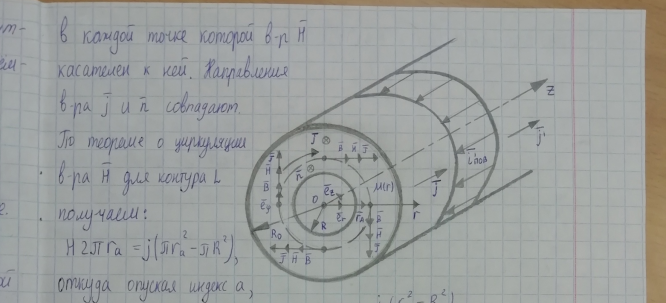 в каждой точке которой в-р H̄
касателен к ней. Направления
в-ра j̄ и n̄ совпадают.
По теореме о циркуляции
в-ра H̄ для контура L
получаем:
H2πrₐ = j(πrₐ² − πR²),
откуда опуская индекс a,
J̄
B̄ H̄ J̄
n̄
J̄
H̄
B̄
ēφ
ēz
O
ēr
rₐ
M(r)
r
R₀
R
J̄ H̄ B̄
B̄
H̄
J̄
j̄
īпов
j̄
z